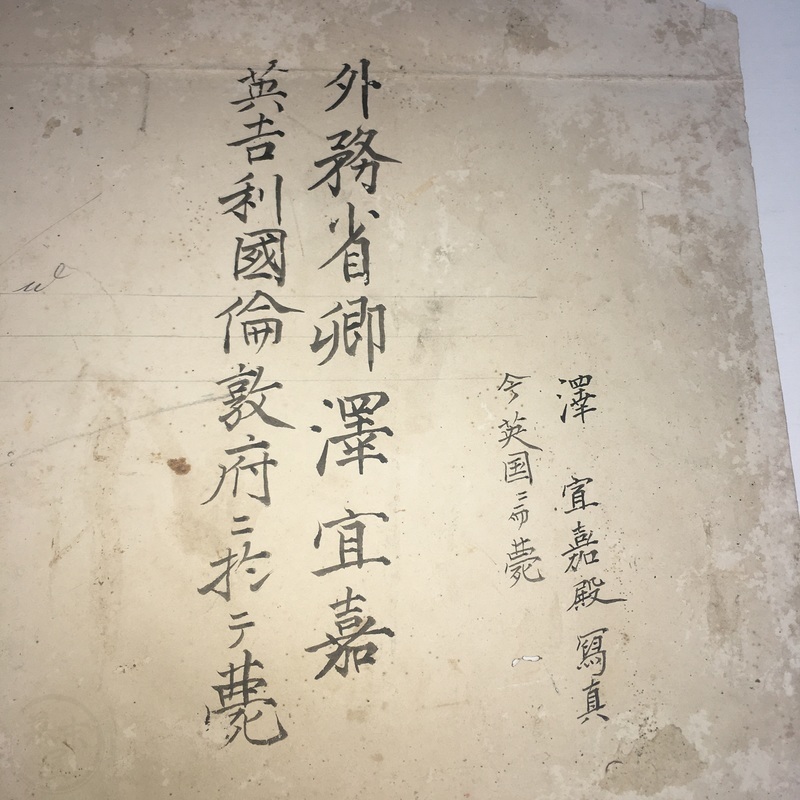 澤 宜嘉殿 寫真
今英国ニ而薨
外務省卿 澤 宜嘉
英吉利國倫敦府ニ於テ薨